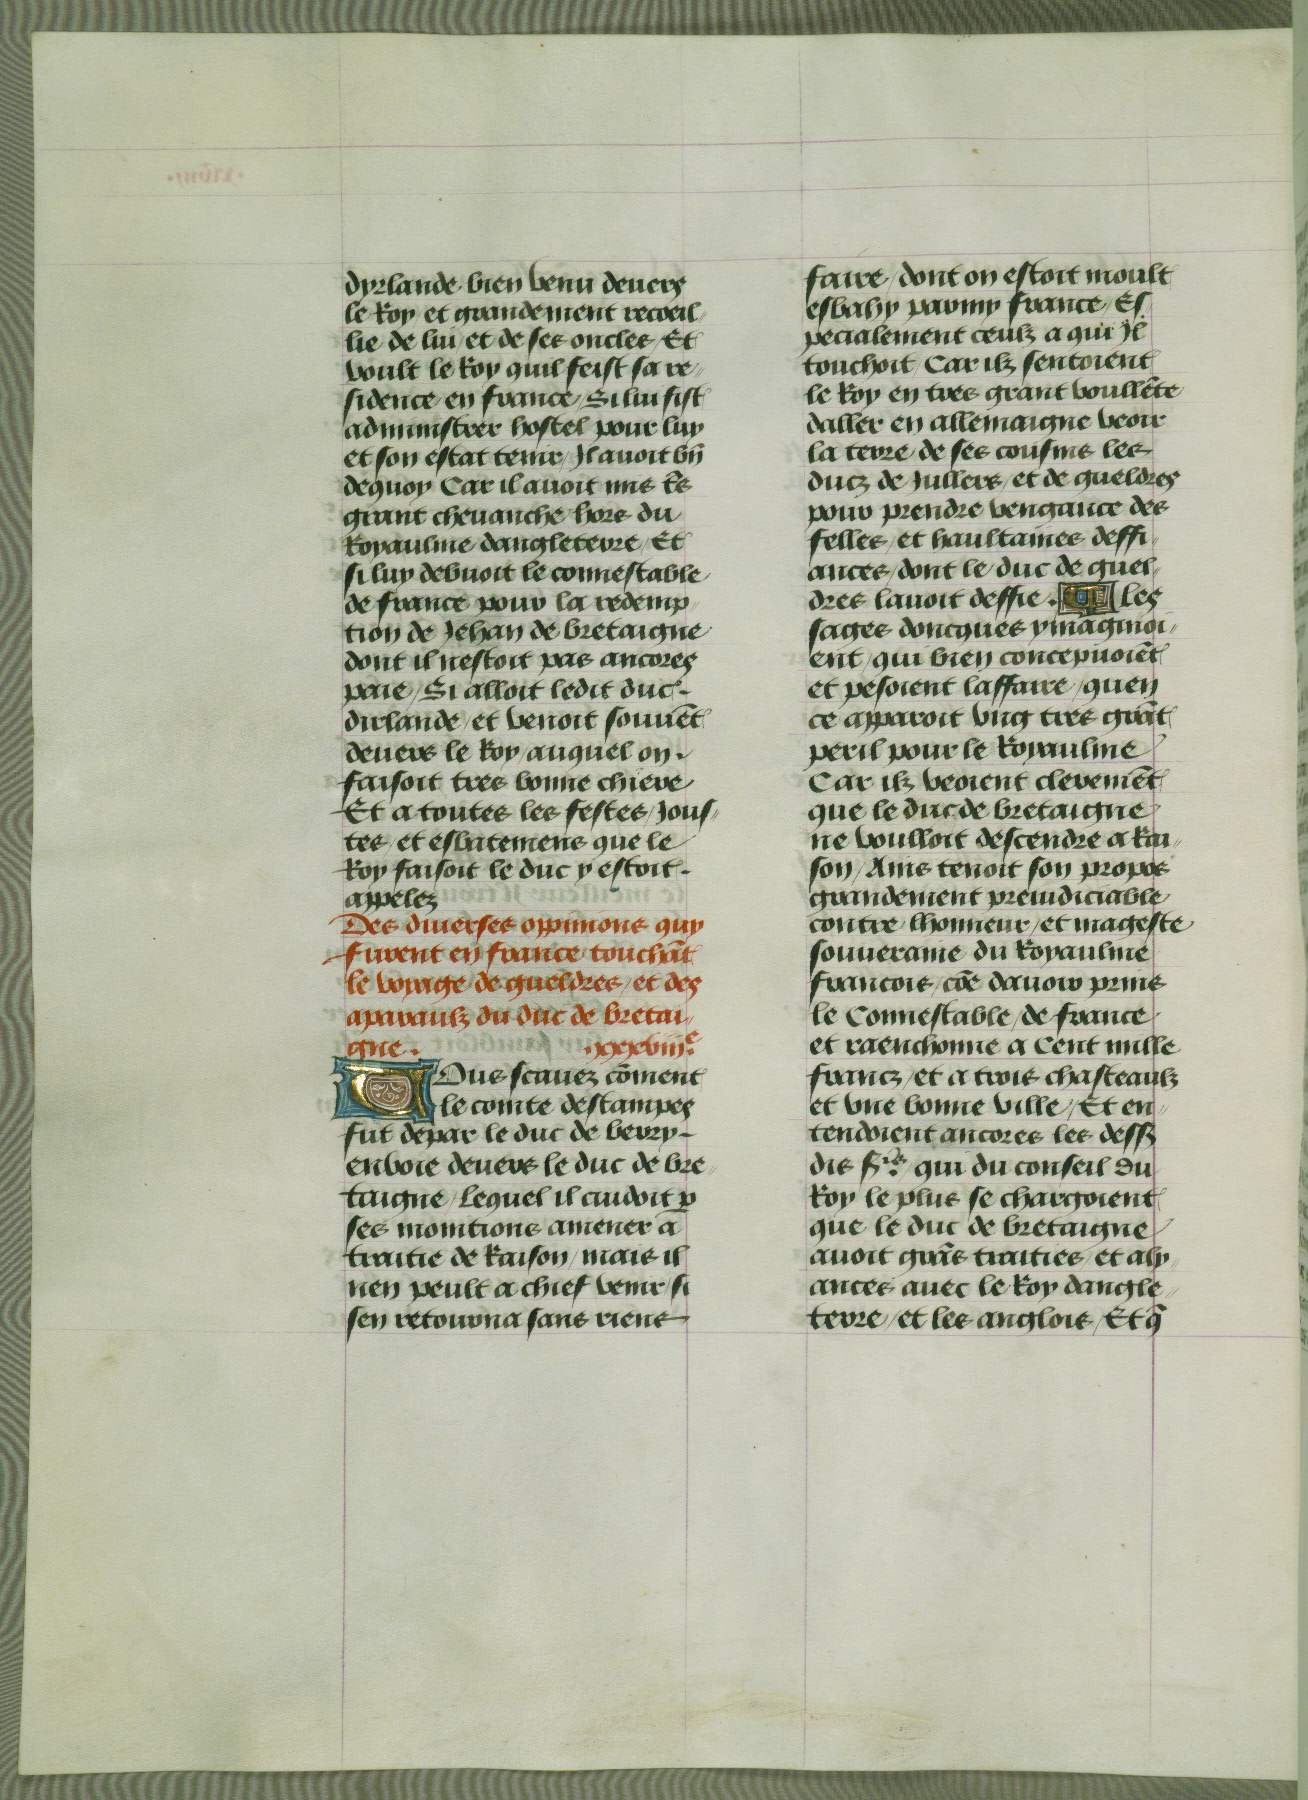 dyrlande bien venu devers
le Roy et grandement recoeil-
lie de lui / et de ses oncles / Et
voult le Roy quil feist sa re-
sidence en france / Si lui fist
administrer hostel pour luy
et son estat tenir / Il avoit bn̄
dequoy Car il avoit mis t̄s
grant chevanche hors du
Royaulme dangleterre / Et
si luy debvoit le connestable
de france pour la redemp-
tion de Jehan de bretaigne
dont il nestoit pas ancores
paie / Si alloit ledit duc.
dirlande / et venoit souvēt
devers le Roy / auquel on.
faisoit tres bonne chiere
Et a toutes les festes / Jous-
tes et esbatemens que le
Roy faisoit le duc y estoit.
appelez
Des diverses oppinions quy
furent en france touchāt
le voyage de gueldres / et des
aparaulz du duc de bretai-
gne. .xxxviiie.
Vous scavez cōment
le comte destampes
fut depar le duc de berry-
envoie devers le duc de bre-
taigne / Lequel il cuidoit p̲
ses monitions amener a
traitie de Raison / mais il
nen peult a chief venir / si
sen retourna sans riens
faire / dont on estoit moult
esbahy parmy france / Es-
pecialement ceulz a qui Jl
touchoit / Car ilz sentoient
le Roy en tres grant voullēte
daller en allemaigne veoir
la terre de ses cousins les
ducz de Jullers / et de gueldres
pour prendre vengance des
felles / et haultaines deffi-
ances / dont le duc de guel-
dres lavoit deffie. ¶ les
sages doncques ymaginoi-
ent / qui bien concepvoiēt
et pesoient laffaire / quen
ce apparoit ung tres grāt
peril pour le Royaulme
Car ilz veoient cleremēt
que le duc de bretaigne
ne voulloit descendre a Rai-
son / Ains tenoit son propos
grandement preiudiciable
contre lhonneur / et mageste
souveraine du Royaulme
francois / cōe davoir prins
le Connestable / de france
et raenchonne a Cent mille
francz / et a trois chasteaulz
et une bonne ville / Et en-
tendoient ancores les dessz
dis Srs. qui du conseil du
Roy le plus se chargoient
que le duc de bretaigne
avoit grās traities / et aly-
ances avec le Roy dangle-
terre / et les anglois / Et q̄